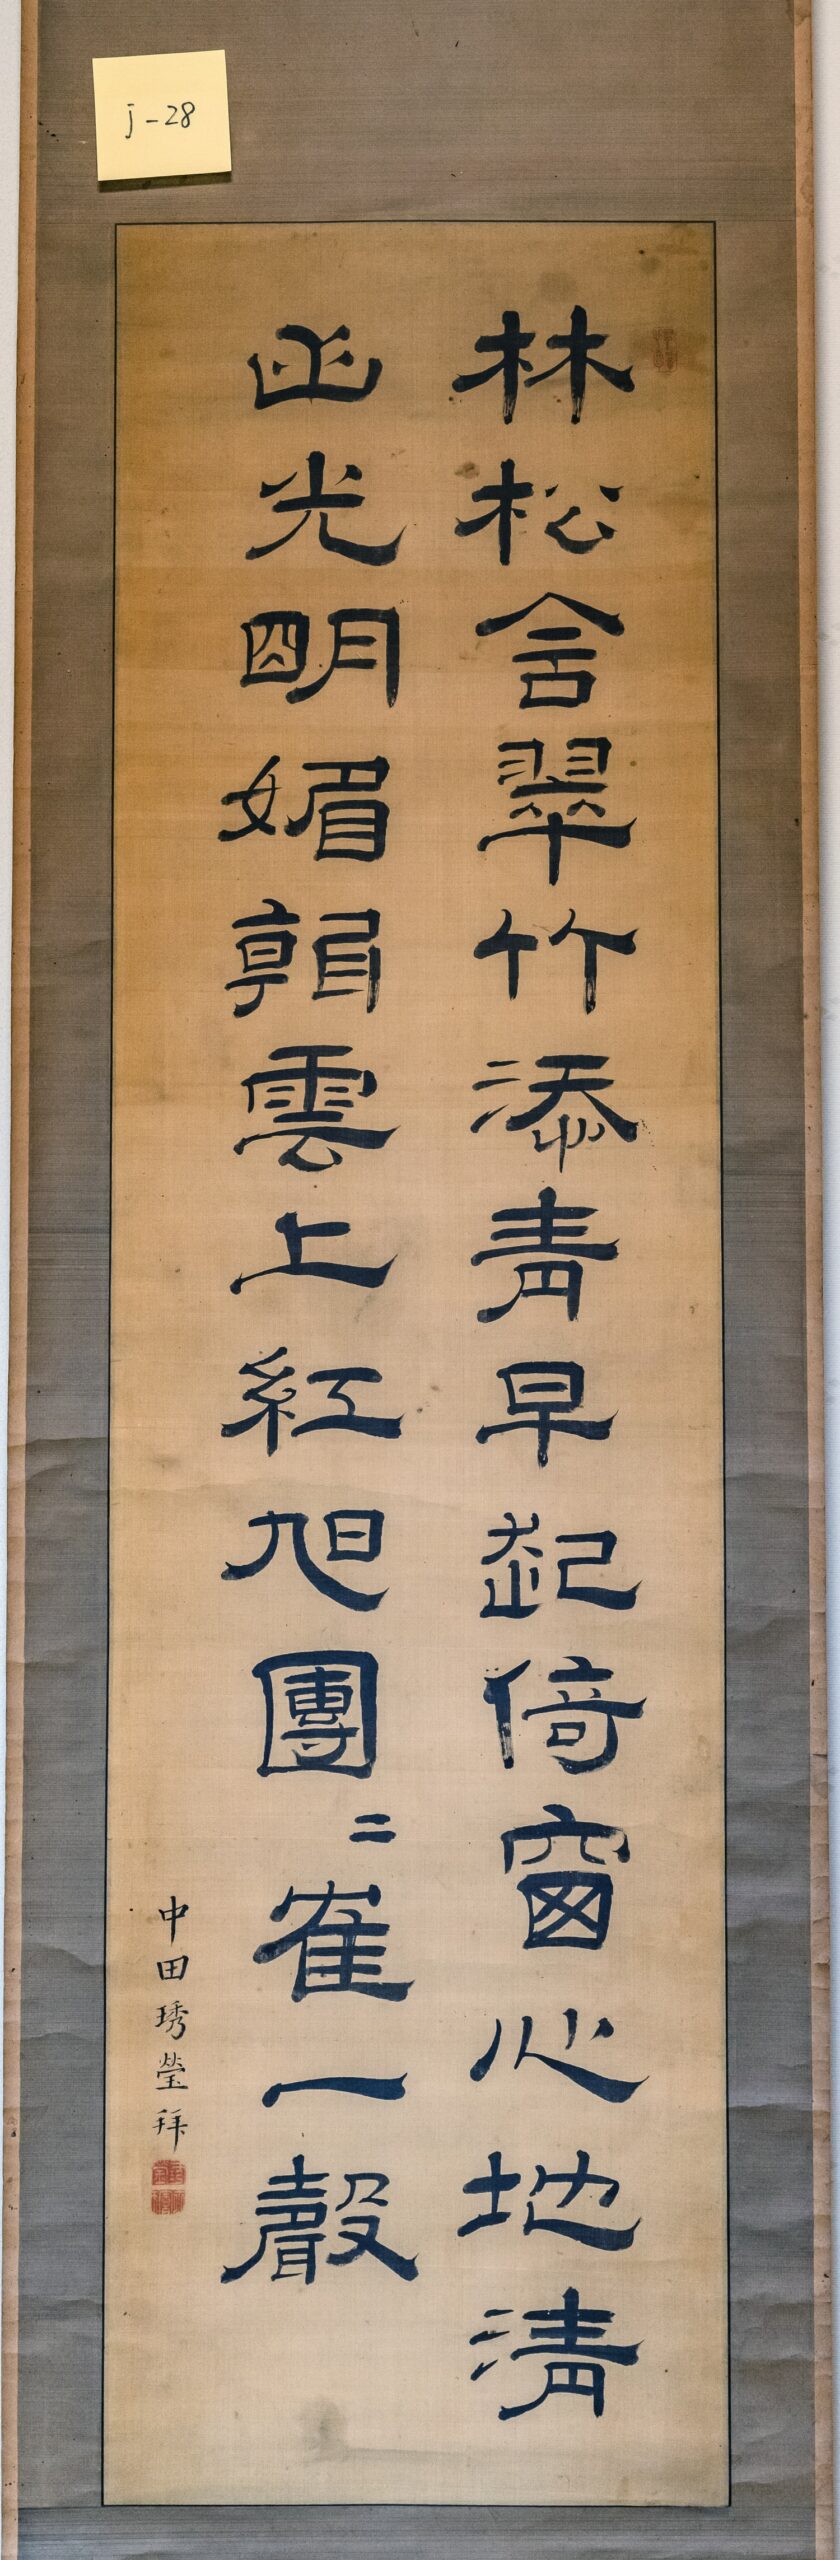 林松含翠竹添青早起倚窗心地清
光明媚朝雲上紅旭團〻隺一聲
中田琇瑩拜
j-28